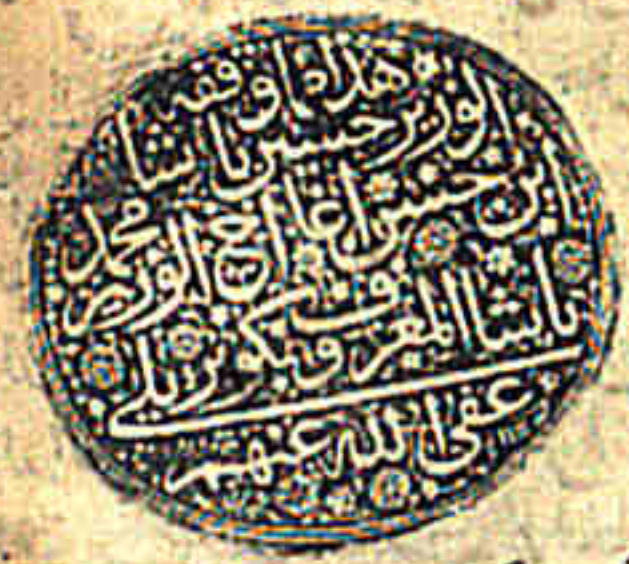 هذا ما وقفه
الوزير حسين پاشا
ابن حسن اغا اخ الوزير محمد
پاشا المعروف بكوپريلي
عفى الله عنهم